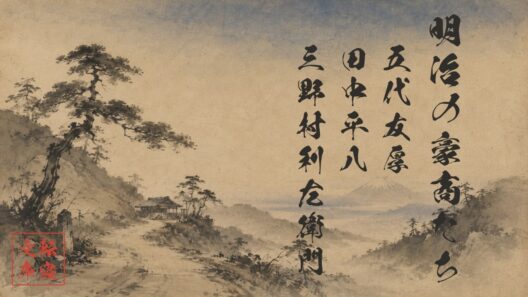 明治の豪商たち
五代友厚
田中平八
三野村利左衛門